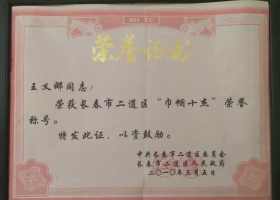 RONG YU
荣誉证书
王义娜同志：
荣获长春市二道区“巾帼十杰”荣誉
称号。
特发此证，以资鼓励。
中共长春市二道区委员会
长春市二道区人民政府
二〇一〇年三月五日